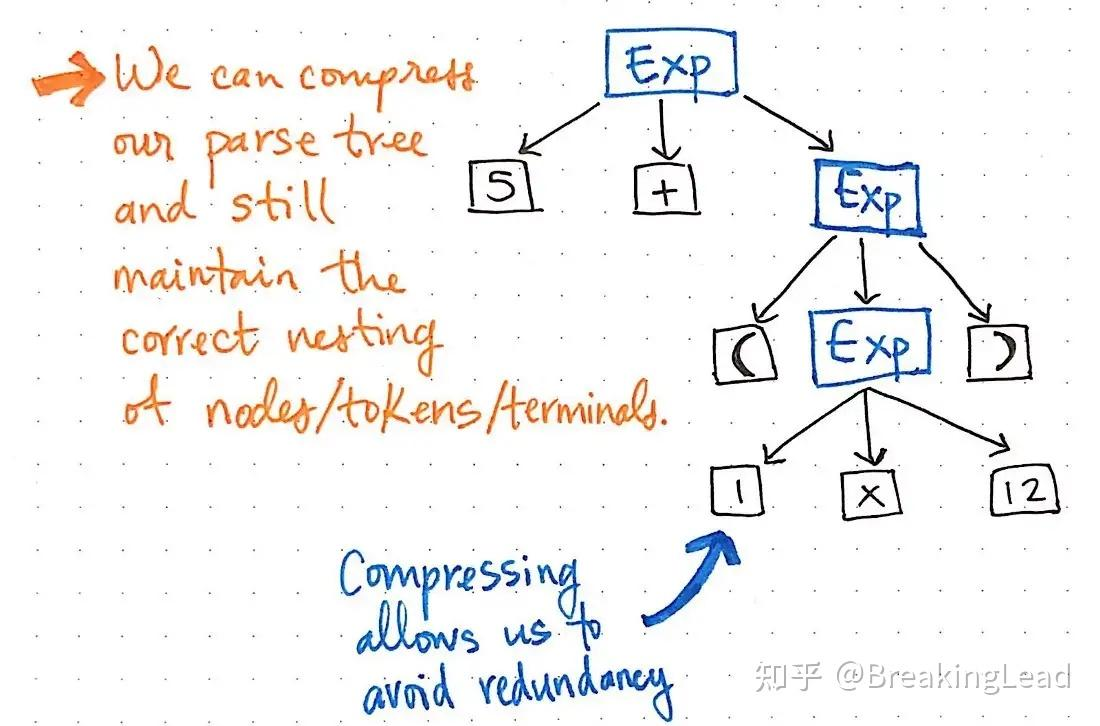 We can compress
our parse tree
and still
maintain the
correct nesting
of nodes/tokens/terminals.
Exp
5
+
Exp
(
Exp
)
1
x
12
Compressing
allows us to
avoid redundancy
知乎 @BreakingLead